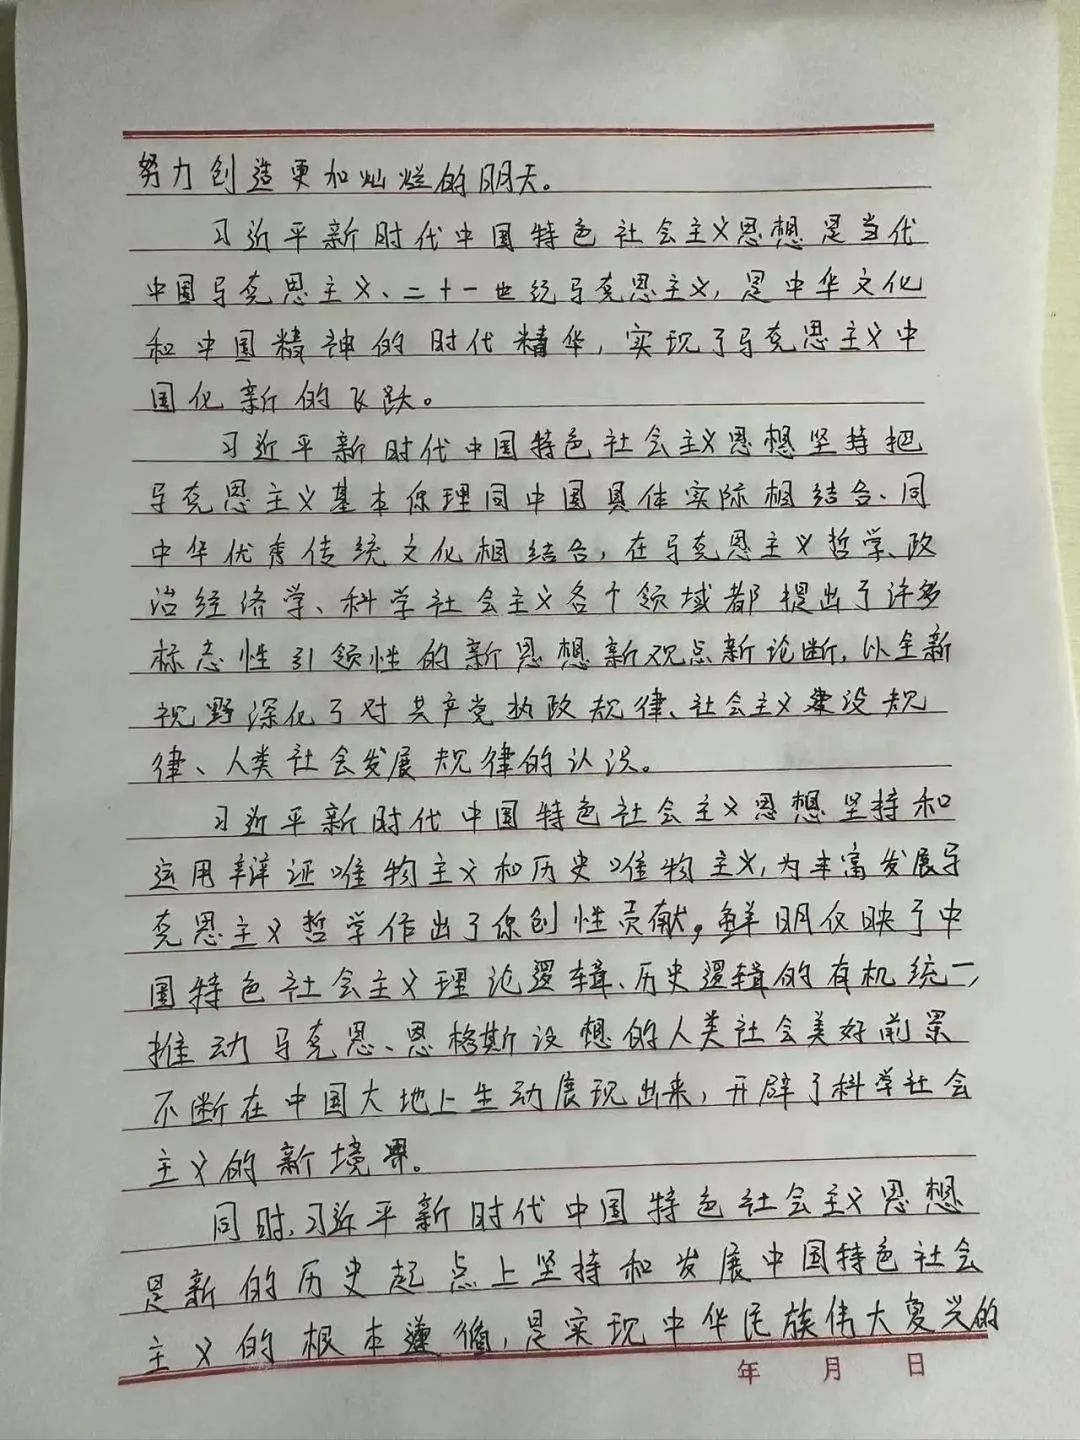 努力创造更加灿烂的明天。
习近平新时代中国特色社会主义思想是当代
中国马克思主义、二十一世纪马克思主义,是中华文化
和中国精神的时代精华,实现了马克思主义中
国化新的飞跃。
习近平新时代中国特色社会主义思想坚持把
马克思主义基本原理同中国具体实际相结合、同
中华优秀传统文化相结合,在马克思主义哲学、政
治经济学、科学社会主义各个领域都提出了许多
标志性引领性的新思想新观点新论断,以全新
视野深化了对共产党执政规律、社会主义建设规
律、人类社会发展规律的认识。
习近平新时代中国特色社会主义思想坚持和
运用辩证唯物主义和历史唯物主义,为丰富发展马
克思主义哲学作出了原创性贡献,鲜明反映了中
国特色社会主义理论逻辑、历史逻辑的有机统一,
推动马克思、恩格斯设想的人类社会美好前景
不断在中国大地上生动展现出来,开辟了科学社会
主义的新境界。
同时,习近平新时代中国特色社会主义思想
是新的历史起点上坚持和发展中国特色社会
主义的根本遵循,是实现中华民族伟大复兴的
年 月 日